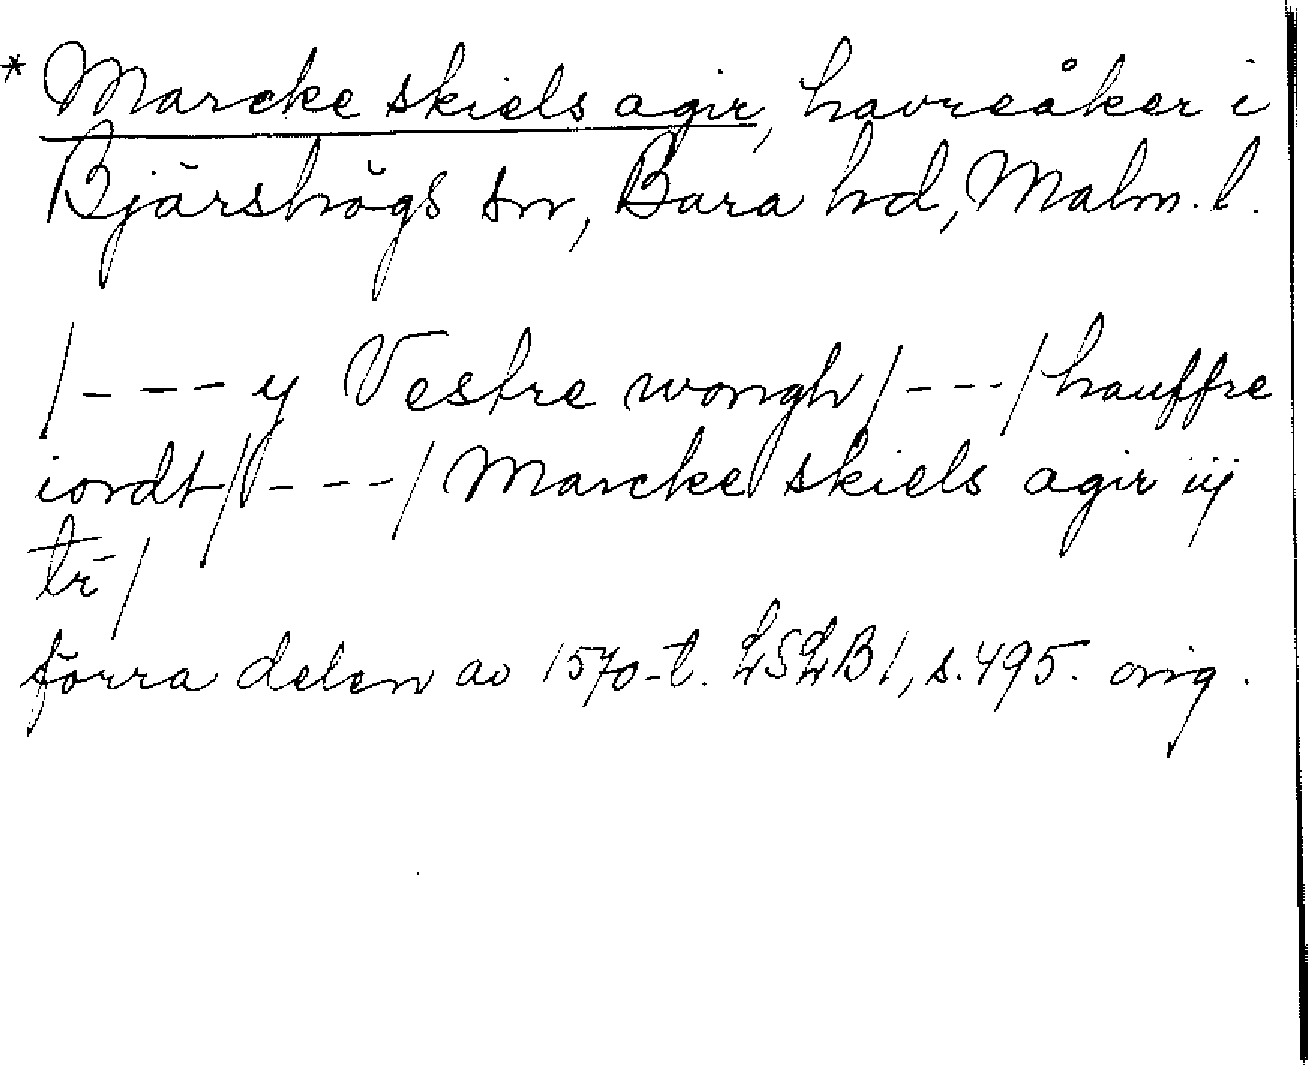 * Marcke skiels agir, havreåker i
Bjärshögs sn, Bara hd, Malm. l.
/---y Vestre wongh/---/hauffre
iordt/---/Marcke skiels agir iij
tr/
förra delen av 1570-t. LSLB1, s.495. orig.